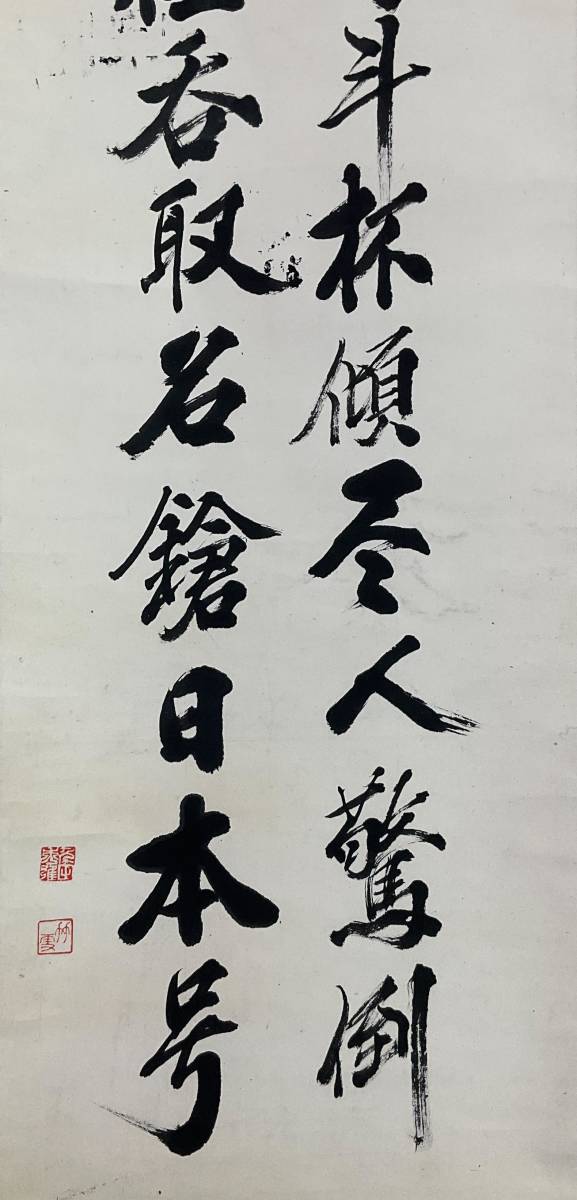 斗杯傾尽人驚倒
呑取名鎗日本号